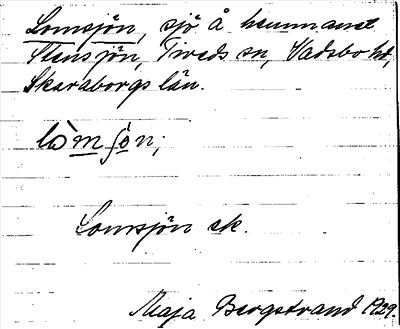 Lomsjön, sjö å hemmanet
Stensjön, Tiveds sn, Vadsbo hd,
Skaraborgs län.
lòmʃòn;
Lomsjön ek.
Maja Bergstrand 1929.